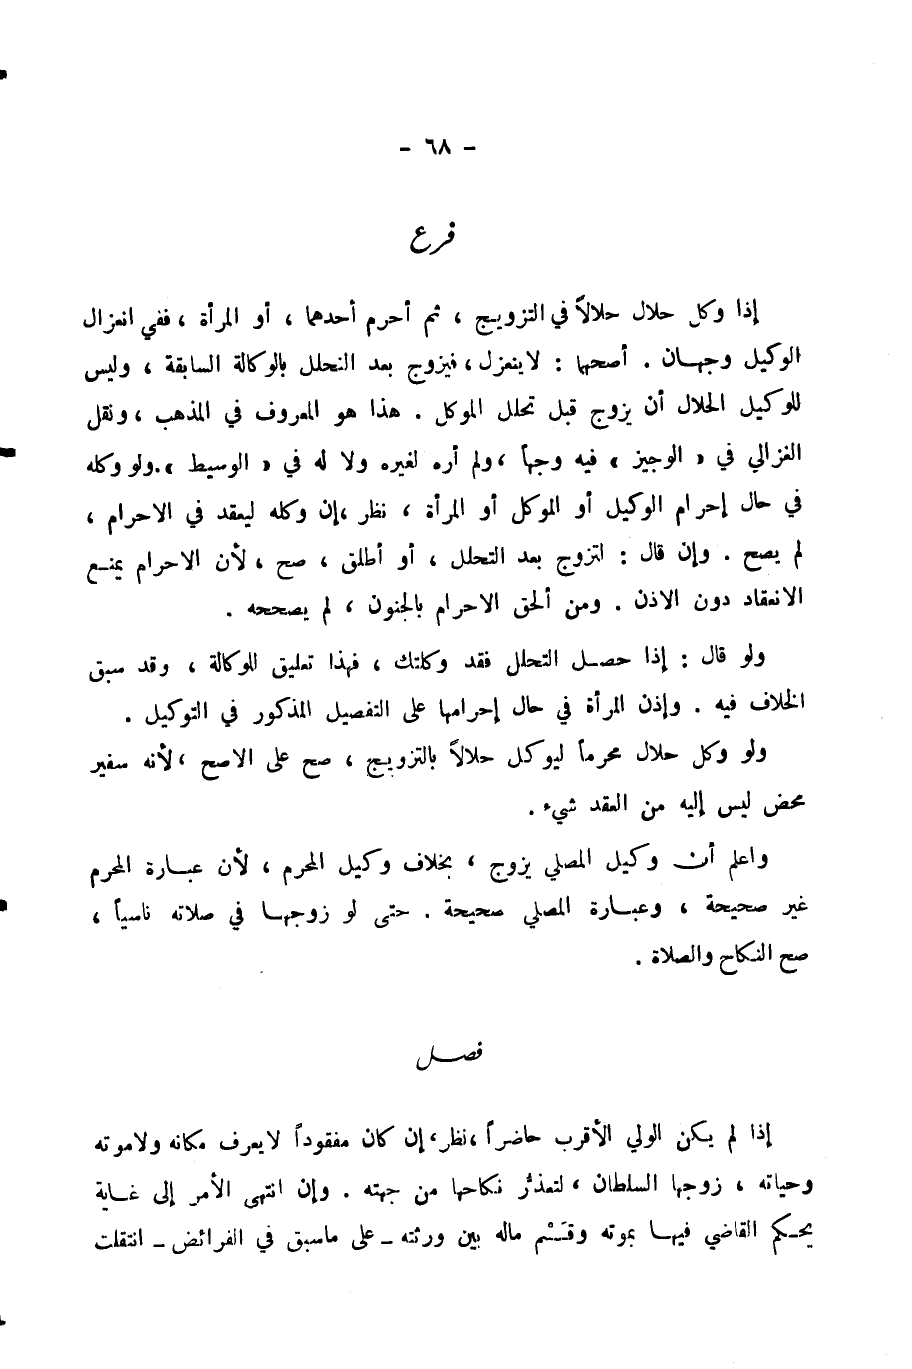 - ٦٨ -
فرع
إذا وكل حلال حلالاً في التزويج ، ثم أحرم أحدهما ، أو المرأة ، ففي انعزال
الوكيل وجهان . أصحها : لا ينعزل ، فيزوج بعد التحلل بالوكالة السابقة ، وليس
للوكيل الحلال أن يزوج قبل تحلل الموكل . هذا هو المعروف في المذهب ، ونقل
الغزالي في « الوجيز » فيه وجهاً ، ولم أره لغيره ولا له في « الوسيط » . ولو وكله
في حال إحرام الوكيل أو الموكل أو المرأة ، نظر ، إن وكله ليعقد في الاحرام ،
لم يصح . وإن قال : لتزوج بعد التحلل ، أو أطلق ، صح ، لأن الاحرام يمنع
الانعقاد دون الاذن . ومن ألحق الاحرام بالجنون ، لم يصححه .
ولو قال : إذا حصل التحلل فقد وكلتك ، فهذا تعليق للوكالة ، وقد سبق
الخلاف فيه . وإذن المرأة في حال إحرامها على التفصيل المذكور في التوكيل .
ولو وكل حلال محرماً ليوكل حلالاً بالتزويج ، صح على الاصح ، لأنه سفير
محض ليس إليه من العقد شيء .
واعلم أن وكيل المصلي يزوج ، بخلاف وكيل المحرم ، لأن عبارة المحرم
غير صحيحة ، وعبارة المصلي صحيحة . حتى لو زوجها في صلاته ناسياً ،
صح النكاح والصلاة .
فصل
إذا لم يكن الولي الأقرب حاضراً ، نظر ، إن كان مفقوداً لا يعرف مكانه ولا موته
وحياته ، زوجها السلطان ، لتعذُّر نكاحها من جهته . وإن انتهى الأمر إلى غاية
يحكم القاضي فيها بموته وقَسْم ماله بين ورثته ـ على ماسبق في الفرائض ـ انتقلت